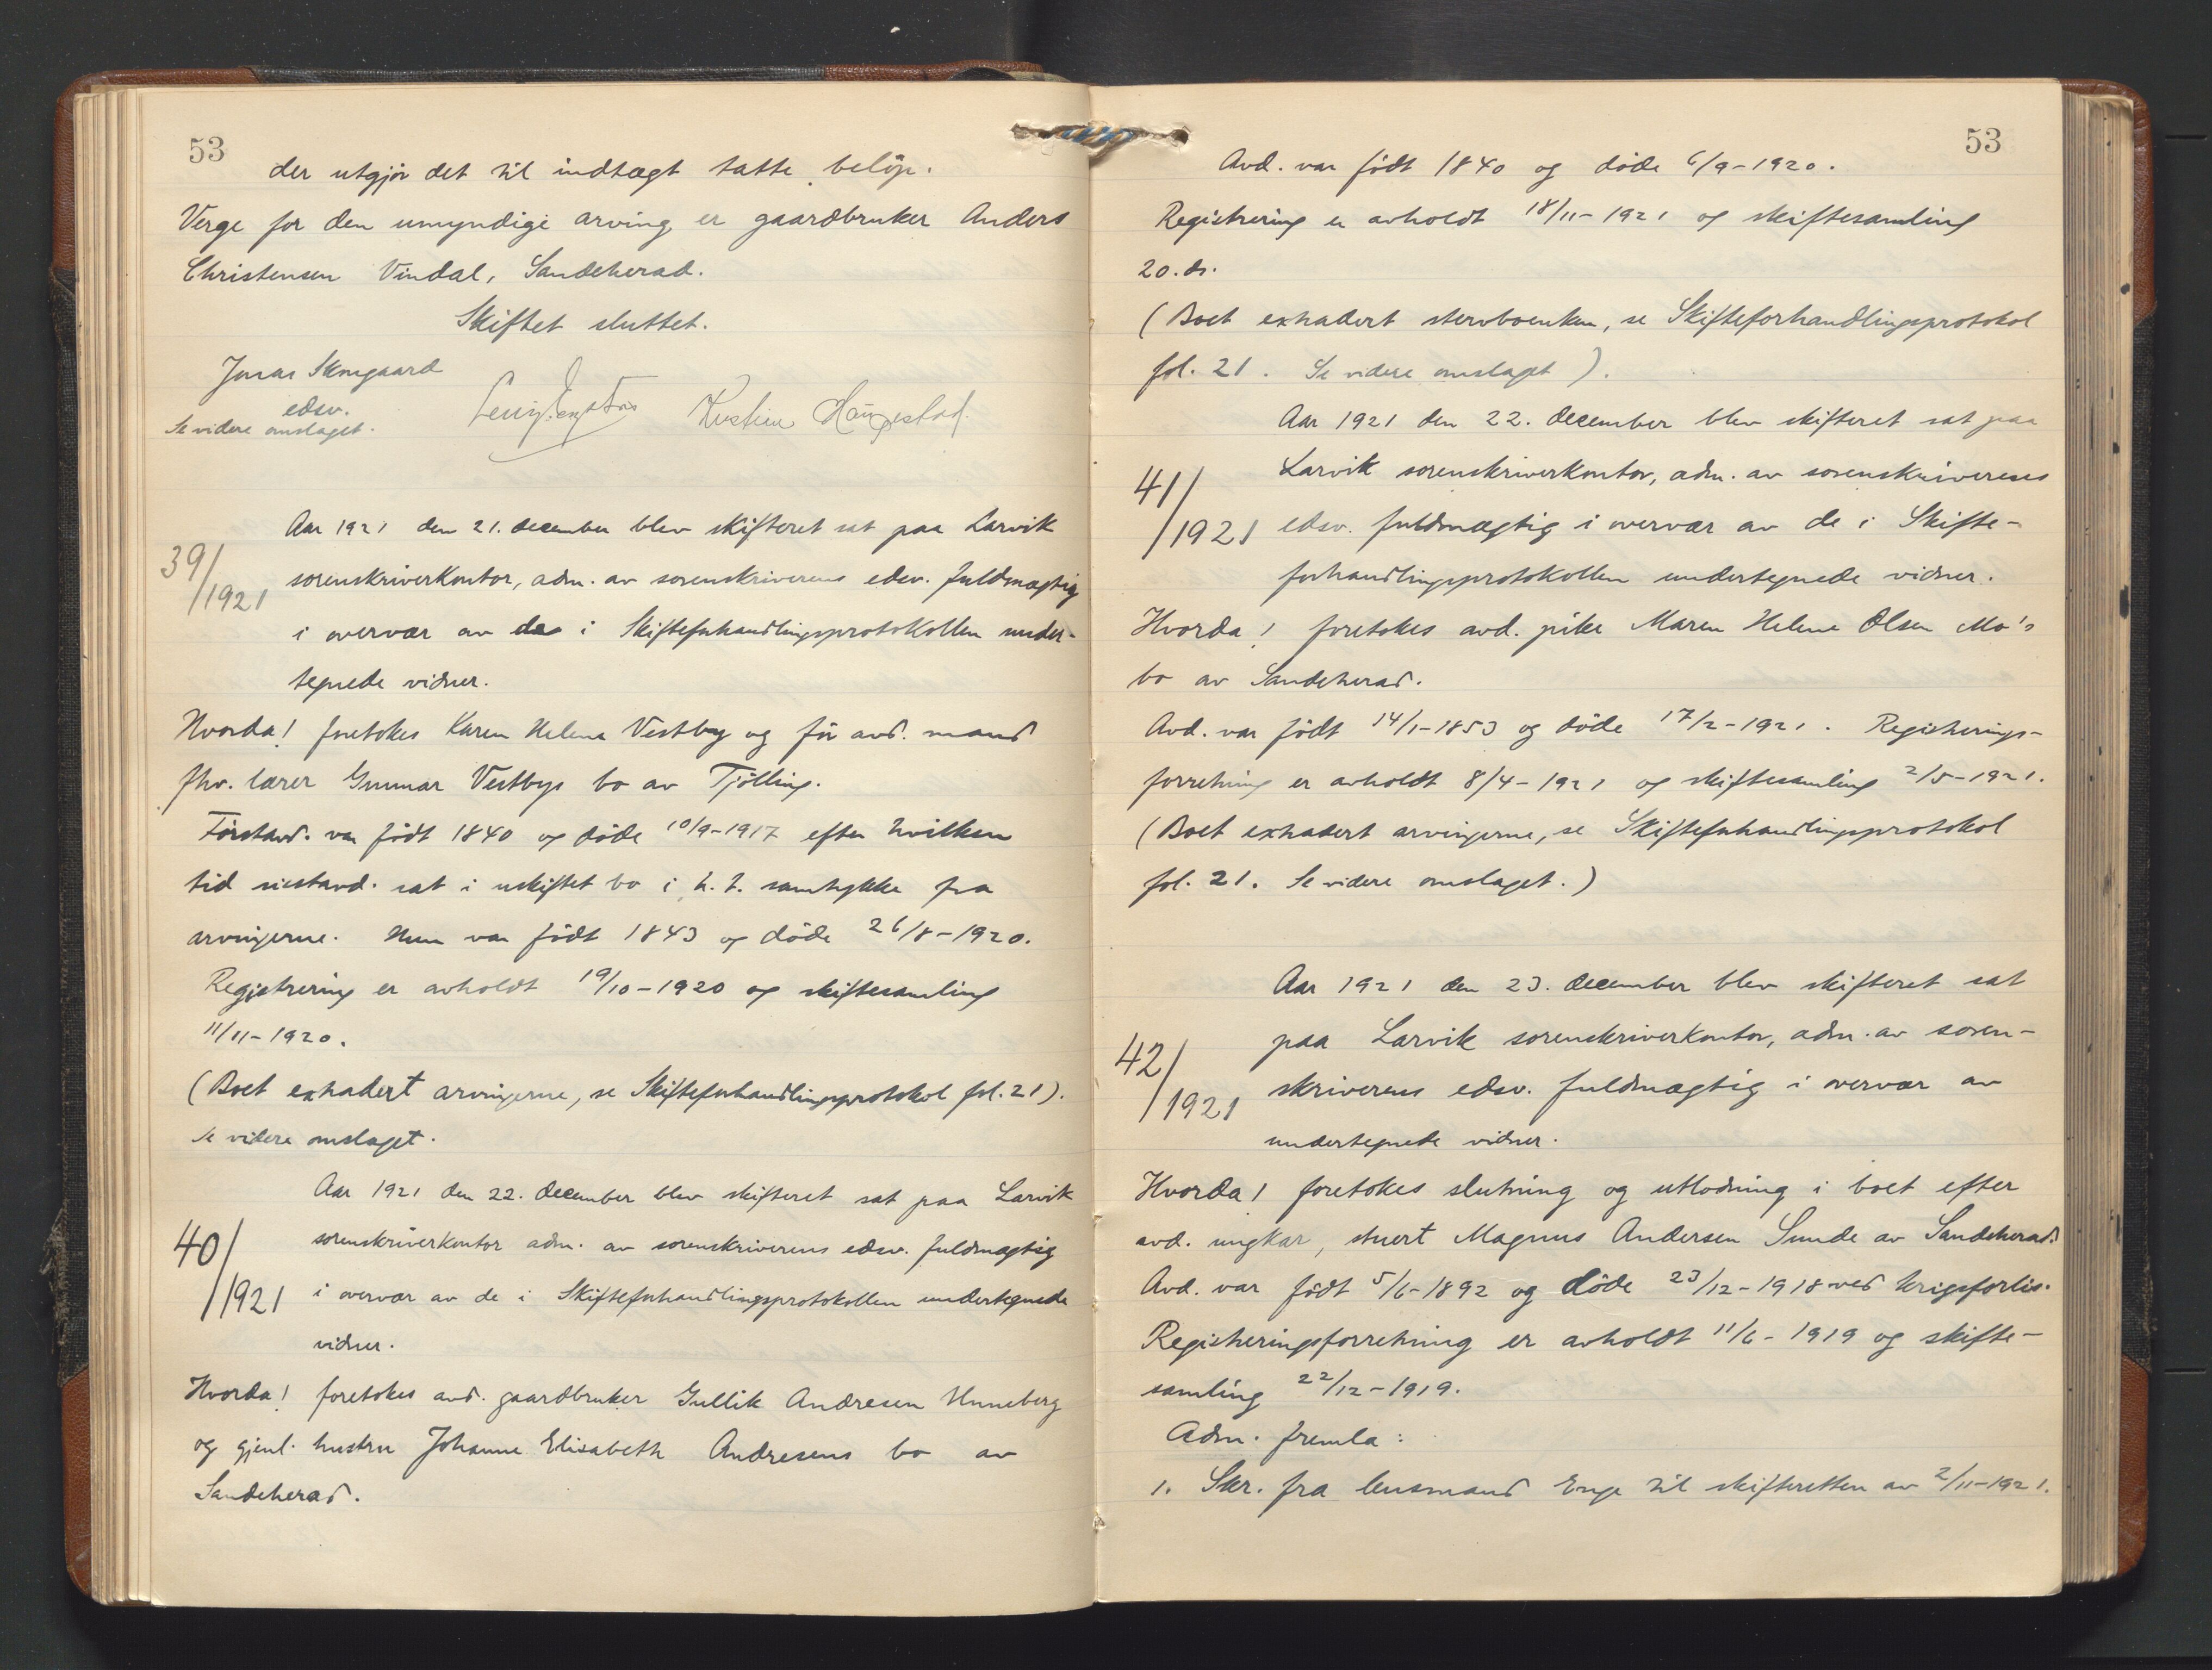 53
der utgjør det til indtægt tatte beløp.
Verge for den umyndige arving er gaardbruker Anders
Christensen Vindal, Sandeherad.
Skiftet sluttet.
Jonas Skougaard
edsv.
Se videre omslaget.
Kristine Haugestad.
Aar 1921 den 21. december blev skifteret sat paa Larvik
39/1921
sorenskriverkontor, adm. av sorenskriverens edsv. fuldmægtig
i overvær av de i Skifteforhandlingsprotokollen under-
tegnede vidner.
Hvorda! foretokes Karen Helene Vestby og før avd. mand
fhv. lærer Gunnar Vestbys bo av Tjølling.
Førstavd. var født 1840 og døde 10/9-1917 efter hvilken
tid sistavd. sat i uskiftet bo i h. t. samtykke fra
arvingerne. Hun var født 1843 og døde 26/8-1920.
Registrering er avholdt 19/10-1920 og skiftesamling
11/11-1920.
(Boet extradert arvingerne, se Skifteforhandlingsprotokol fol. 21).
Se videre omslaget.
Aar 1921 den 22. december blev skifteret sat paa Larvik
40/1921
sorenskriverkontor adm. av sorenskriverens edsv. fuldmægtig
i overvær av de i Skifteforhandlingsprotokollen undertegnede
vidner.
Hvorda! foretokes avd. gaardbruker Gullik Andresen Unneberg
og gjenl. hustru Johanne Elisabeth Andresens bo av
Sandeherad.
53
Avd. var født 1840 og døde 6/9-1920.
Registrering er avholdt 18/11-1921 og skiftesamling
20. ds.
(Boet extradert stervboenken, se Skifteforhandlingsprotokol
fol. 21. Se videre omslaget).
Aar 1921 den 22. december blev skifteret sat paa
41/1921
Larvik sorenskriverkontor, adm. av sorenskriverenes
edsv. fuldmægtig i overvær av de i Skifte-
forhandlingsprotokollen undertegnede vidner.
Hvorda! foretokes avd. pike Maren Helene Olsen Mo's
bo av Sandeherad.
Avd. var født 14/1-1853 og døde 17/2-1921. Registrerings-
forretning er avholdt 8/4-1921 og skiftesamling 2/5-1921.
(Boet extradert arvingerne, se Skifteforhandlingsprotokol
fol. 21. Se videre omslaget.)
Aar 1921 den 23. december blev skifteret sat
42/1921
paa Larvik sorenskriverkontor, adm. av soren-
skriverens edsv. fuldmægtig i overvær av
undertegnede vidner.
Hvorda! foretokes slutning og utlodning i boet efter
avd. ungkar, stuert Magnus Andersen Sunde av Sandeherad.
Avd. var født 5/6-1892 og døde 23/12-1918 ved krigsforlis.
Registreringsforretning er avholdt 11/6-1919 og skifte-
samling 22/12-1919.
Adm. fremla:
1. Skr. fra lensmand Enge til skifteretten av 2/11-1921.